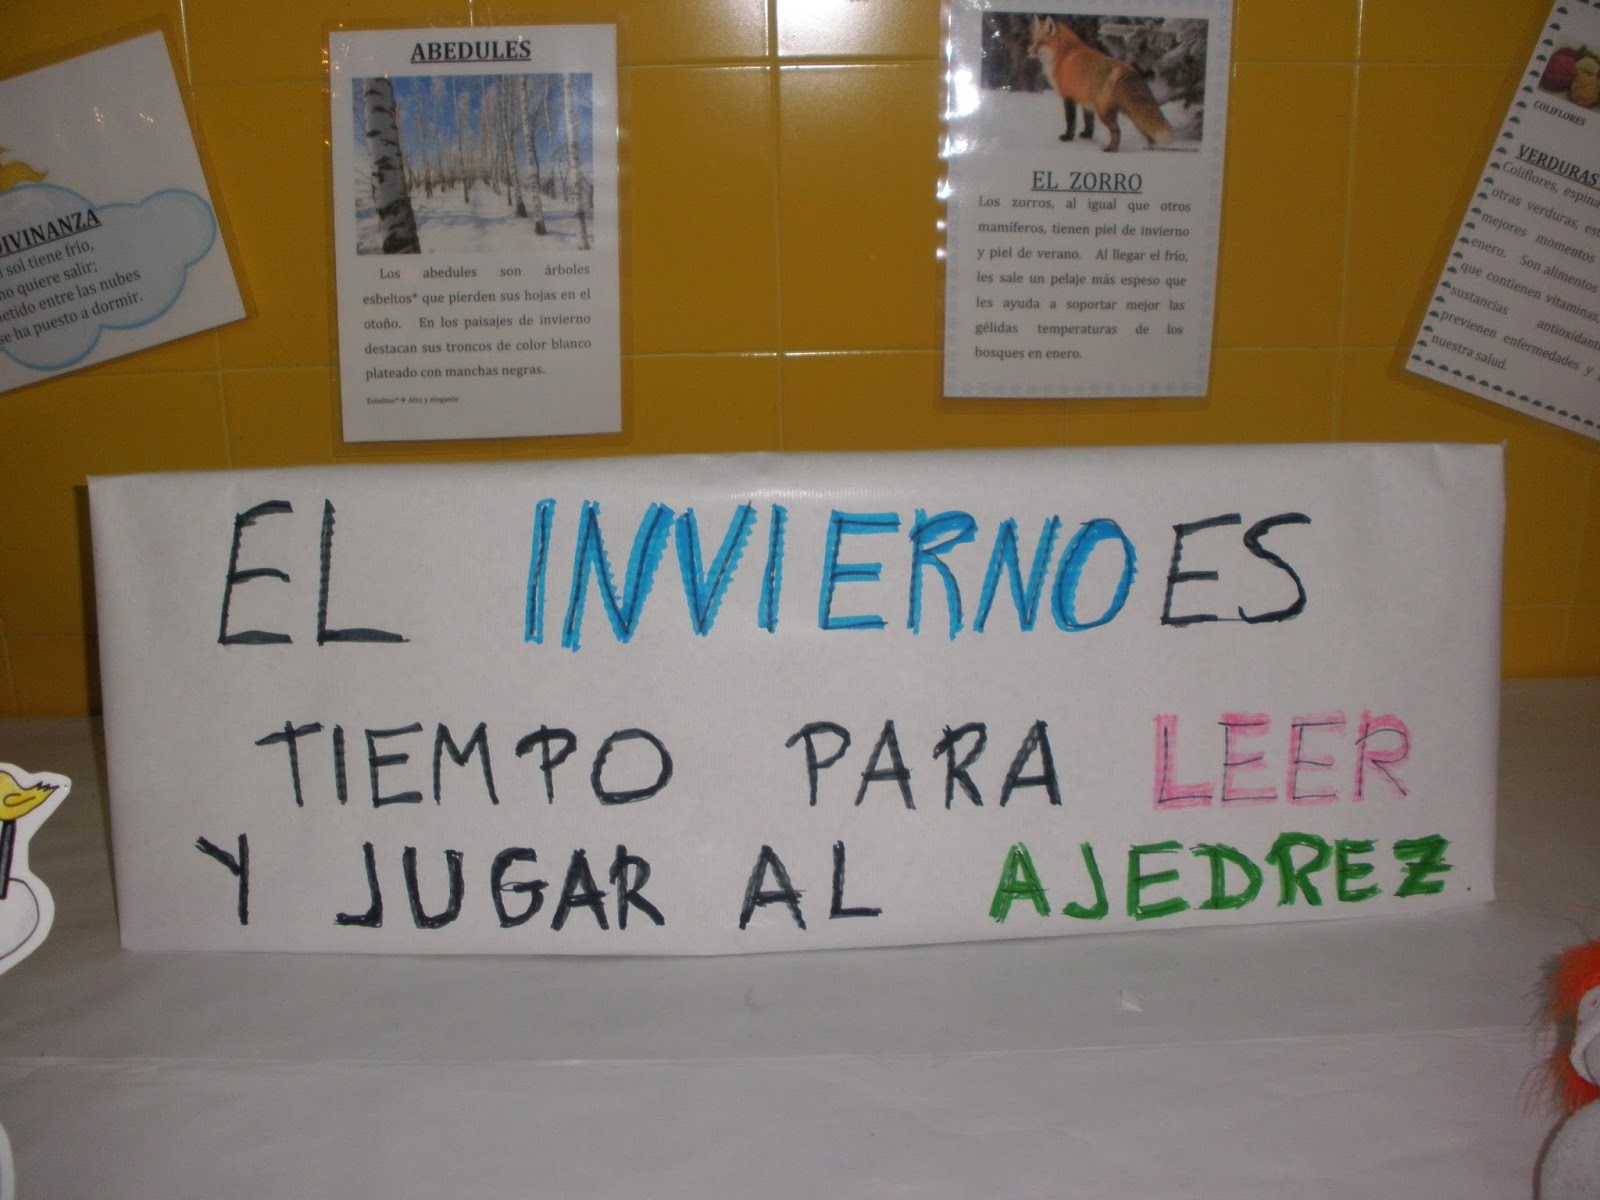 DIVINANZA
sol tiene frío,
no quiere salir;
metido entre las nubes
se ha puesto a dormir.
ABEDULES
Los abedules son árboles
esbeltos* que pierden sus hojas en el
otoño. En los paisajes de invierno
destacan sus troncos de color blanco
plateado con manchas negras.
Esbeltos* → Alto y elegante
EL ZORRO
Los zorros, al igual que otros
mamíferos, tienen piel de invierno
y piel de verano. Al llegar el frío,
les sale un pelaje más espeso que
les ayuda a soportar mejor las
gélidas temperaturas de los
bosques en enero.
COLIFLORES
VERDURAS
Coliflores,
otras verduras,
mejores momentos
enero. Son alimentos
que contienen vitaminas,
sustancias
previenen enfermedades y
nuestra salud.
EL INVIERNO ES
TIEMPO PARA LEER
Y JUGAR AL AJEDREZ.